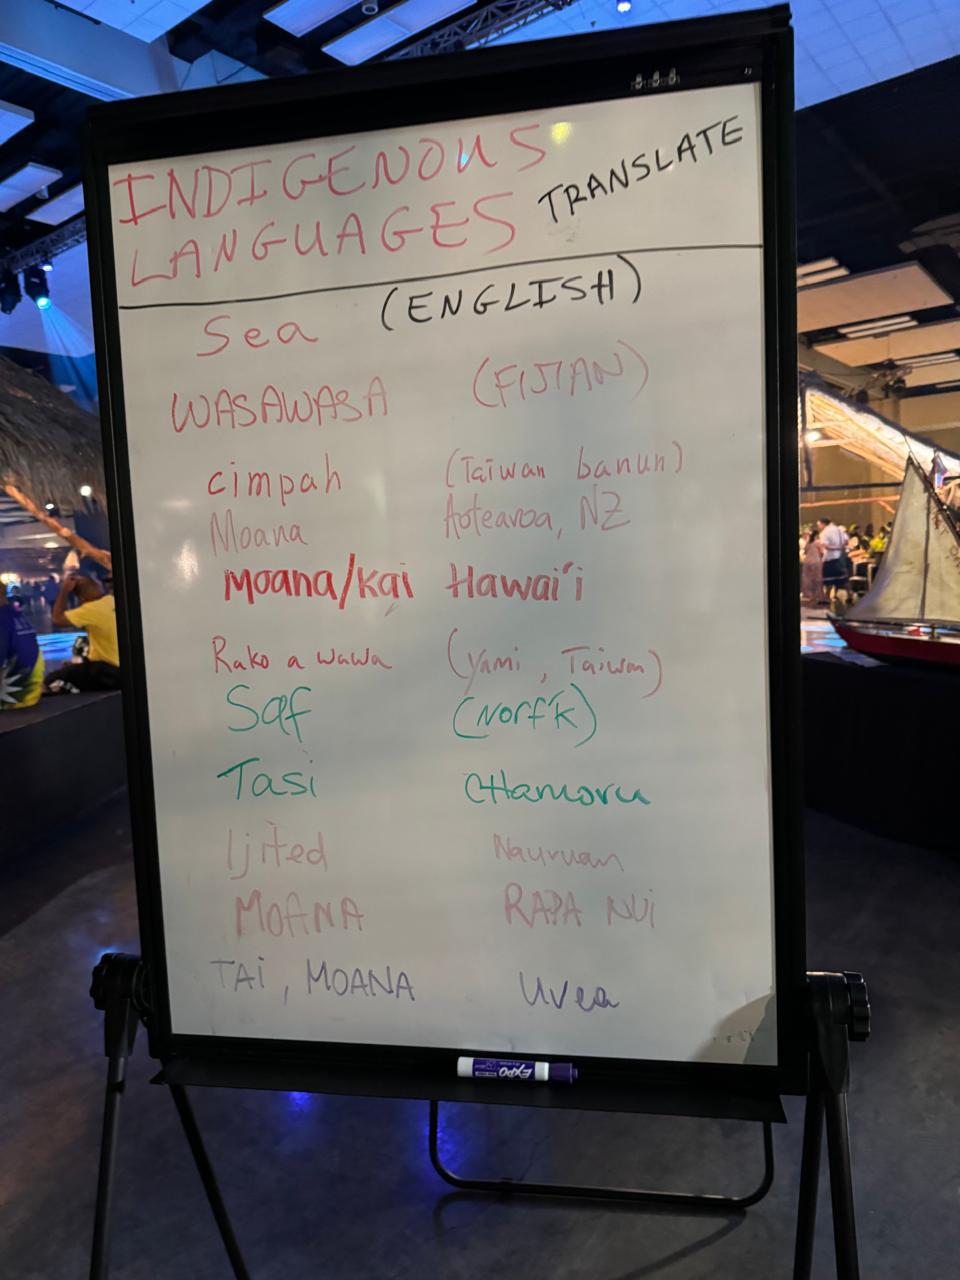 INDIGENOUS
LANGUAGES TRANSLATE
Sea (ENGLISH)
WASAWASA (FIJIAN)
cimpah (Taiwan banun)
Moana Aotearoa, NZ
Moana/kai Hawai'i
Rako a wawa (Yami, Taiwan)
Salf (Norf'k)
Tasi CHamoru
Ijited Nauruan
MOANA RAPA NUi
TAi, MOANA Uvea
EXPO